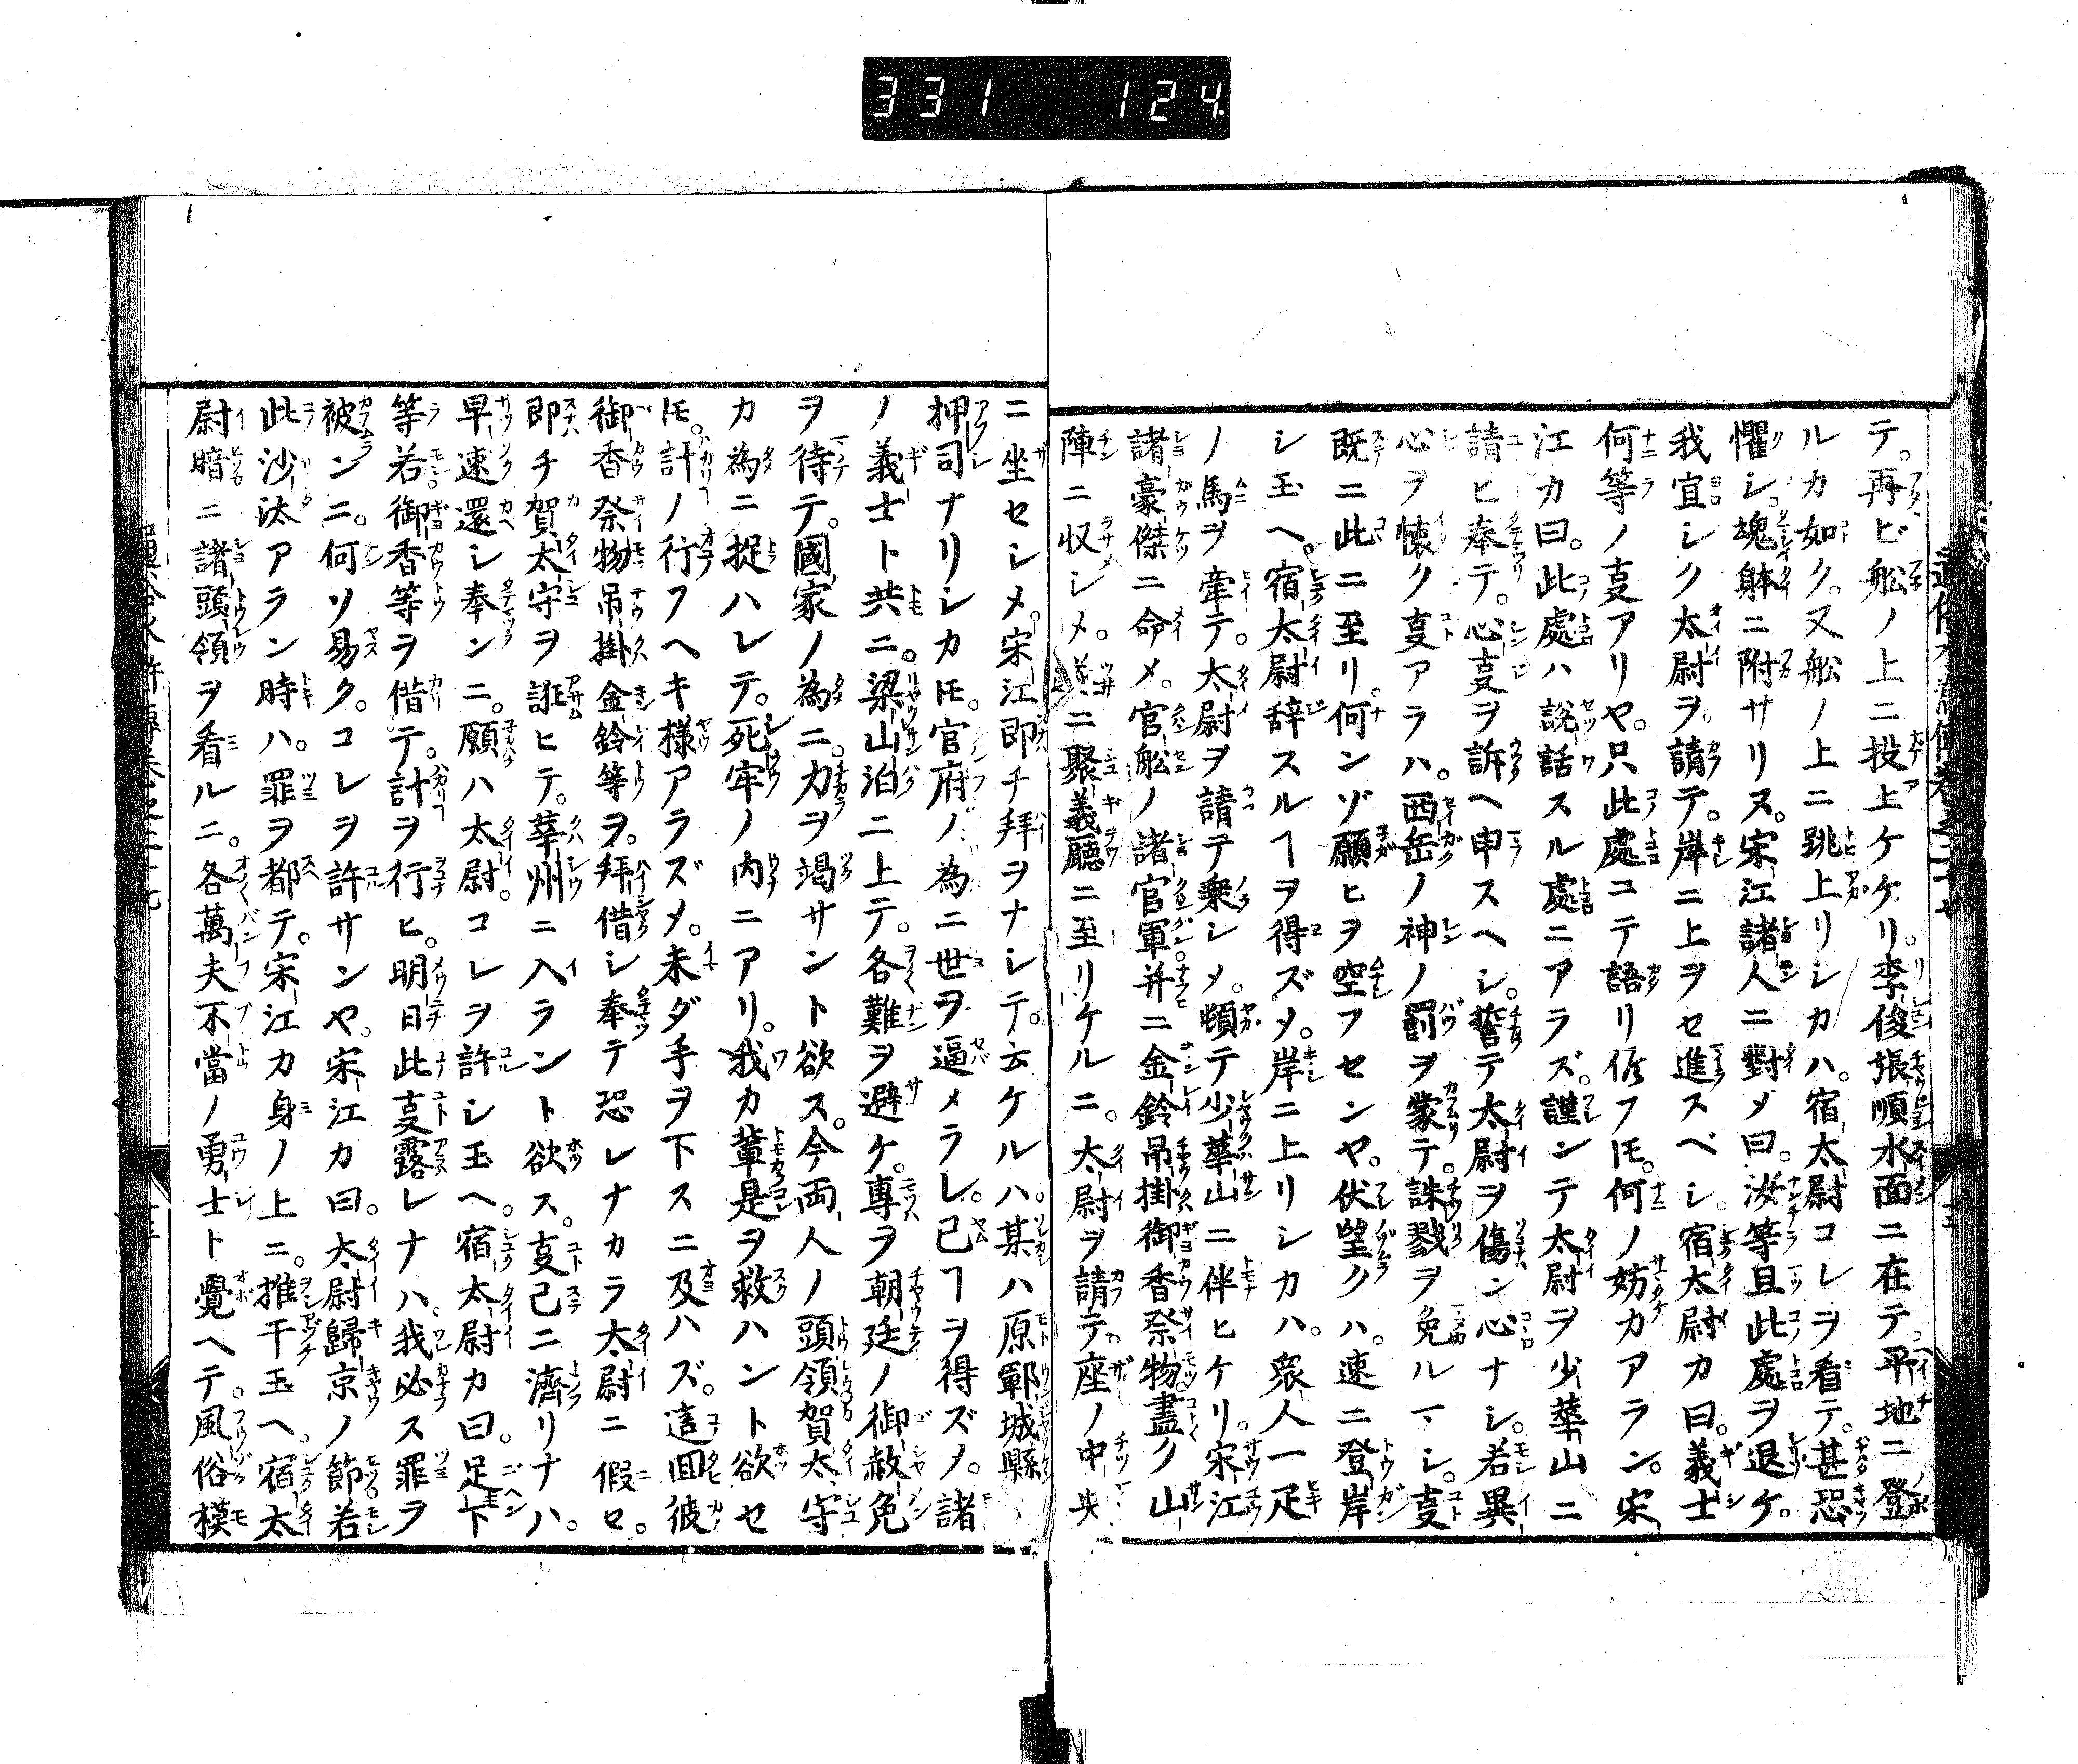 331 124
テ。再ビ舩ノ上ニ投上ケケリ。李俊張順水面ニ在テ。平地ニ登
ルカ如ク。又舩ノ上ニ跳上リシカハ。宿太尉コレヲ看テ。甚恐
懼シ。魂躰ニ附サリス。宋江諸人ニ對メ曰。汝等且此處ヲ退ケ。
我宜シク太尉ヲ請テ。岸ニ上ヲセ進スベシ。宿太尉カ曰。義士
何等ノ叓アリヤ。只此處ニテ語リ給フ𪜈。何ノ妨カアラン。宋
江カ曰。此處ハ説話スル處ニアラズ。謹ンテ太尉ヲ少華山ニ
請ヒ奉テ。心叓ヲ訴ヘ申スヘシ。誓テ太尉ヲ傷ン心ナシ。若異
心ヲ懐ク叓アラハ。西岳ノ神ノ罰ヲ蒙テ。誅戮ヲ免ルヽヿシ。叓
既ニ此ニ至リ。何ンゾ願ヒヲ空フセンヤ。伏望クハ。速ニ登岸
シ玉ヘ。宿太尉辞スルヿヲ得ズメ。岸ニ上リシカハ。衆人一疋
ノ馬ヲ牽テ。太尉ヲ請テ乗シメ。頓テ少華山ニ伴ヒケリ。宋江
諸豪傑ニ命メ。官舩ノ諸官軍并ニ金鈴吊掛御香祭物盡ク山
陣ニ収シメ。ニ聚義廳ニ至リケルニ。太尉ヲ請テ座ノ中央
ニ坐セシメ。宋江即チ拜ヲナシテ。云ケルハ。某ハ原鄆城縣
押司ナリシカ𪜈。官府ノ為ニ世ヲ逼メラレ。已ヿヲ得ズメ。諸
ノ義士ト共ニ。梁山泊ニ上テ。各難ヲ避ケ。專ヲ朝廷ノ御赦免
ヲ待テ。國家ノ為ニ。力ヲ竭サント欲ス。今両人ノ頭領賀太守
カ為ニ捉ハレテ。死牢ノ内ニアリ。我カ輩是ヲ救ハント欲セ
𪜈。計ノ行フヘキ様アラズメ。未ダ手ヲ下スニ及ハズ。這囬彼
御香祭物吊掛金鈴等ヲ。拜借シ奉テ恐レナカラ太尉ニ假ロ。
即チ賀太守ヲ誑ヒテ。華州ニ入ラント欲ス。叓已ニ濟リナハ。
早速還シ奉ンニ。願ハ太尉。コレヲ許シ玉ヘ。宿太尉カ曰。足下
等若御香等ヲ借テ。計ヲ行ヒ。明日此叓露レナハ。我必ス罪ヲ
被ンニ。何ソ易ク。コレヲ許サンヤ。宋江カ曰。太尉歸京ノ節若
此沙汰アラン時ハ。罪ヲ都テ。宋江カ身ノ上ニ。推干玉ヘ。宿太
尉暗ニ諸頭領ヲ看ルニ。各萬夫不當ノ勇士ト覺ヘテ。風俗模